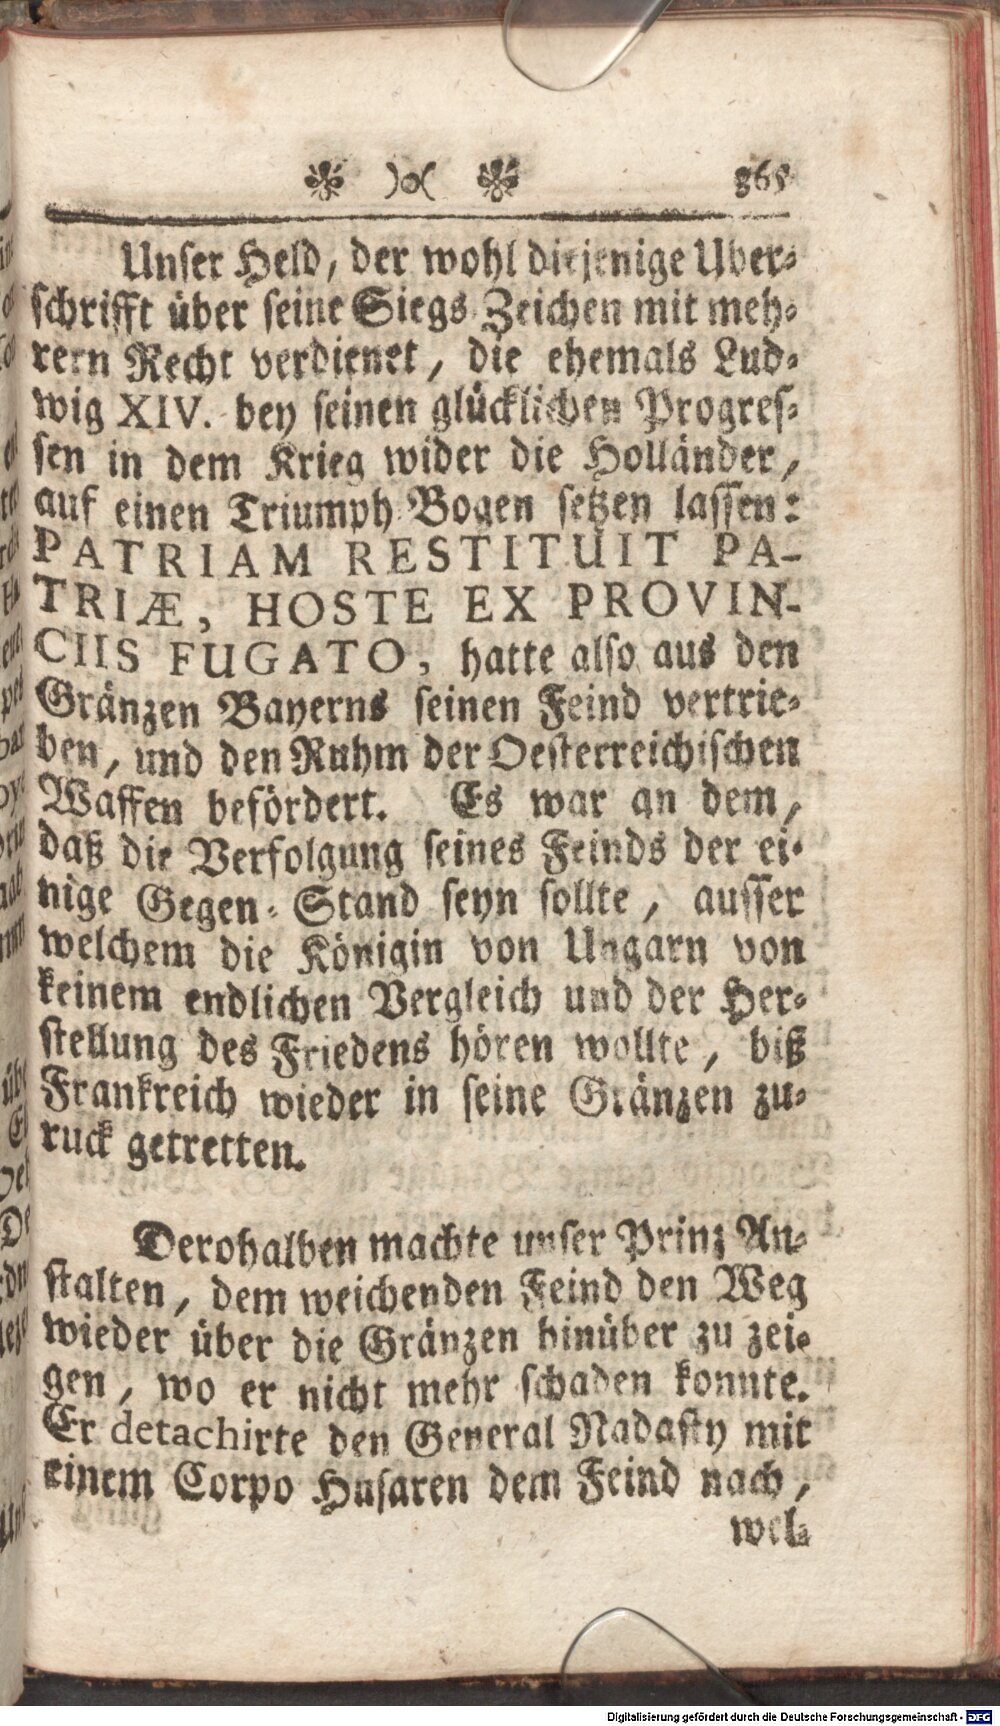 365
Unser Held, der wohl diejenige Uber-
schrifft über seine Siegs-Zeichen mit meh-
rern Recht verdienet, die ehemals Lud-
wig XIV. bey seinen glücklichen Progres-
sen in dem Krieg wider die Holländer,
auf einen Triumph-Bogen setzen lassen:
PATRIAM RESTITUIT PA-
TRIÆ, HOSTE EX PROVIN-
CIIS FUGATO, hatte also aus den
Gränzen Bayerns seinen Feind vertrie-
ben, und den Ruhm der Oesterreichischen
Waffen befördert. Es war an dem,
daß die Verfolgung seines Feinds der ei-
nige Gegen-Stand seyn sollte, ausser
welchem die Königin von Ungarn von
keinem endlichen Vergleich und der Her-
stellung des Friedens hören wollte, biß
Frankreich wieder in seine Gränzen zu-
ruck getretten.
Derohalben machte unser Prinz An-
stalten, dem weichenden Feind den Weg
wieder über die Gränzen hinüber zu zei-
gen, wo er nicht mehr schaden konnte.
Er detachirte den General Nadasty mit
einem Corpo Husaren dem Feind nach,
wel-
Digitalisierung gefördert durch die Deutsche Forschungsgemeinschaft - DFG